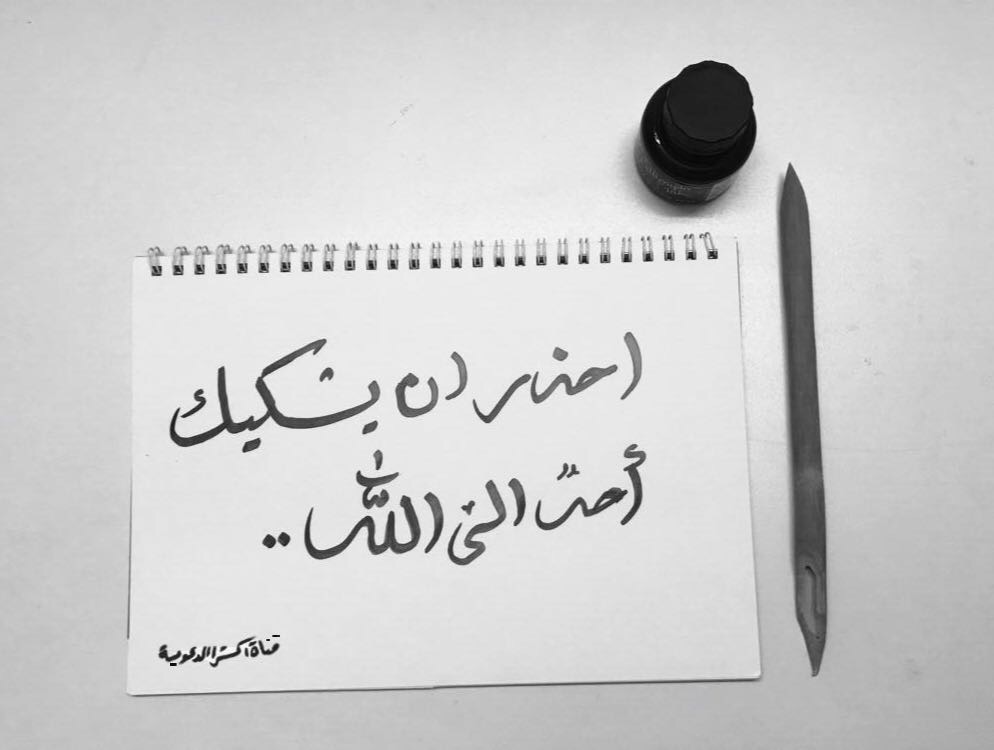 احذر ان يشكيك
أحدٌ الىٰ اللّٰه ..
قناة اكسترا الدعوية